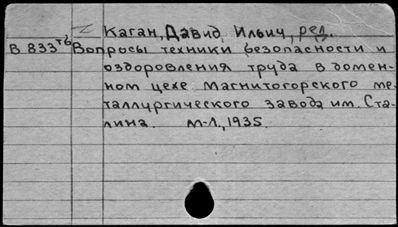 Каган, Давид Ильич, ред.
В 833тб Вопросы техники безопасности и
оздоровления труда в домен-
ном цехе Магнитогорского ме-
таллургического завода им. Ста-
лина. М-Л., 1935.